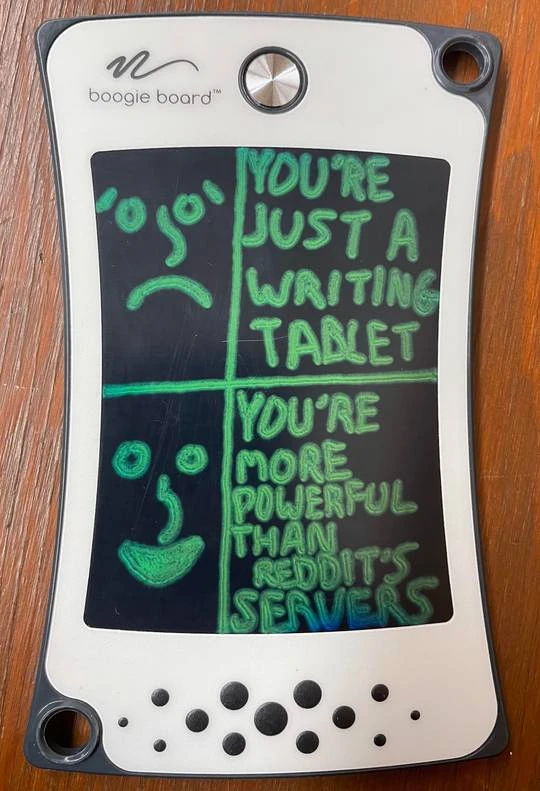 boogie board™
YOU'RE
JUST A
WRITING
TABLET
YOU'RE
MORE
POWERFUL
THAN
REDDIT'S
SERVERS